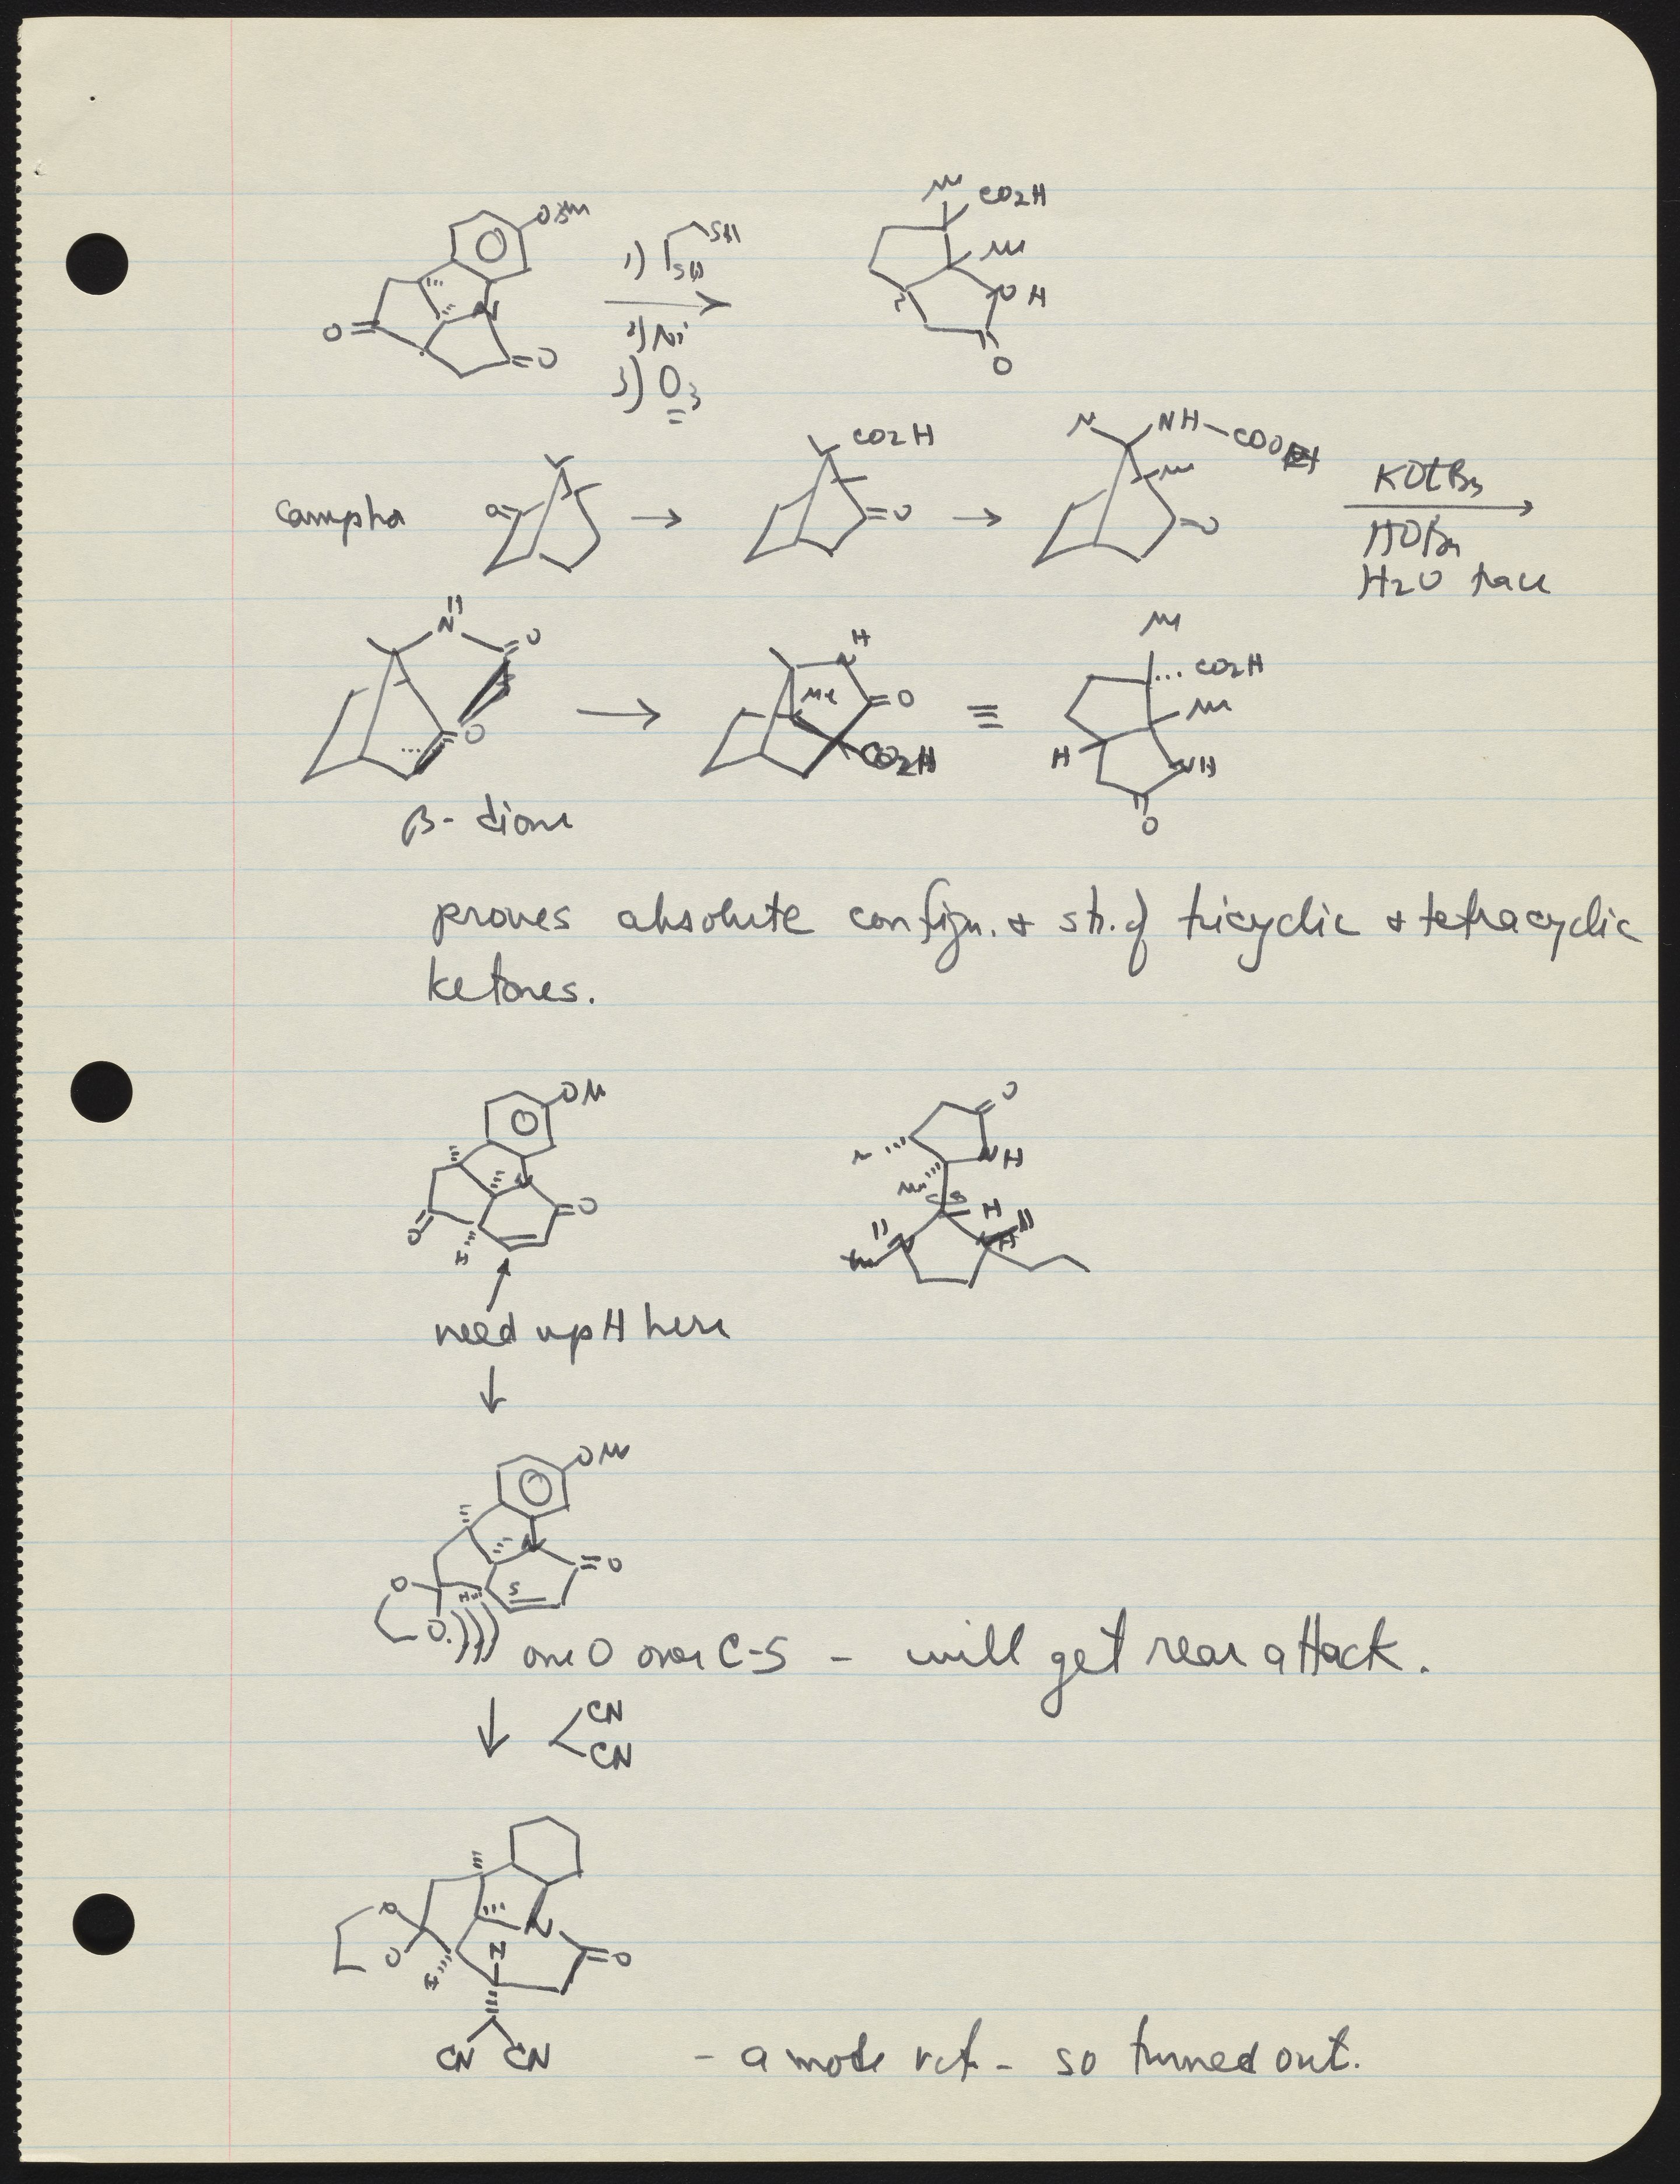 OM
1) SH
SH
2) Ni
3) O3
N
O=
=O
M CO2H
M
NH
O
camphor O=
CO2H
=O
M NH-COO
M
=O
KOtBu
HOBu
H2O trace
H
N
O
=O
β-dione
H
N
Me
=O
CO2H
≡
M
CO2H
M
H
NH
O
proves absolute confign. & str. of tricyclic & tetracyclic
ketones.
OM
N
=O
O
H
need up H here
O
NH
M
M
H
H
N
OM
N
=O
O
O
H
5
one O over C-5 - will get rear attack.
CN
CN
N
=O
O
O
H
H
CN CN
- a mode rct - so turned out.